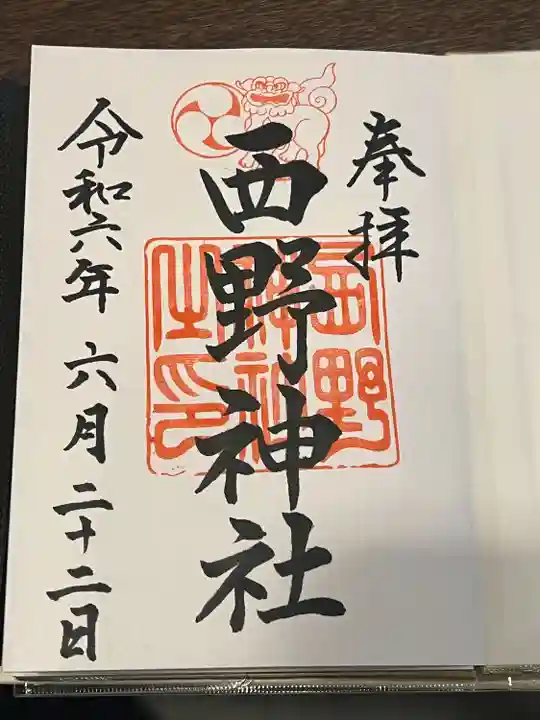 奉拝
西野神社
西野神社之印
令和六年 六月 二十二日